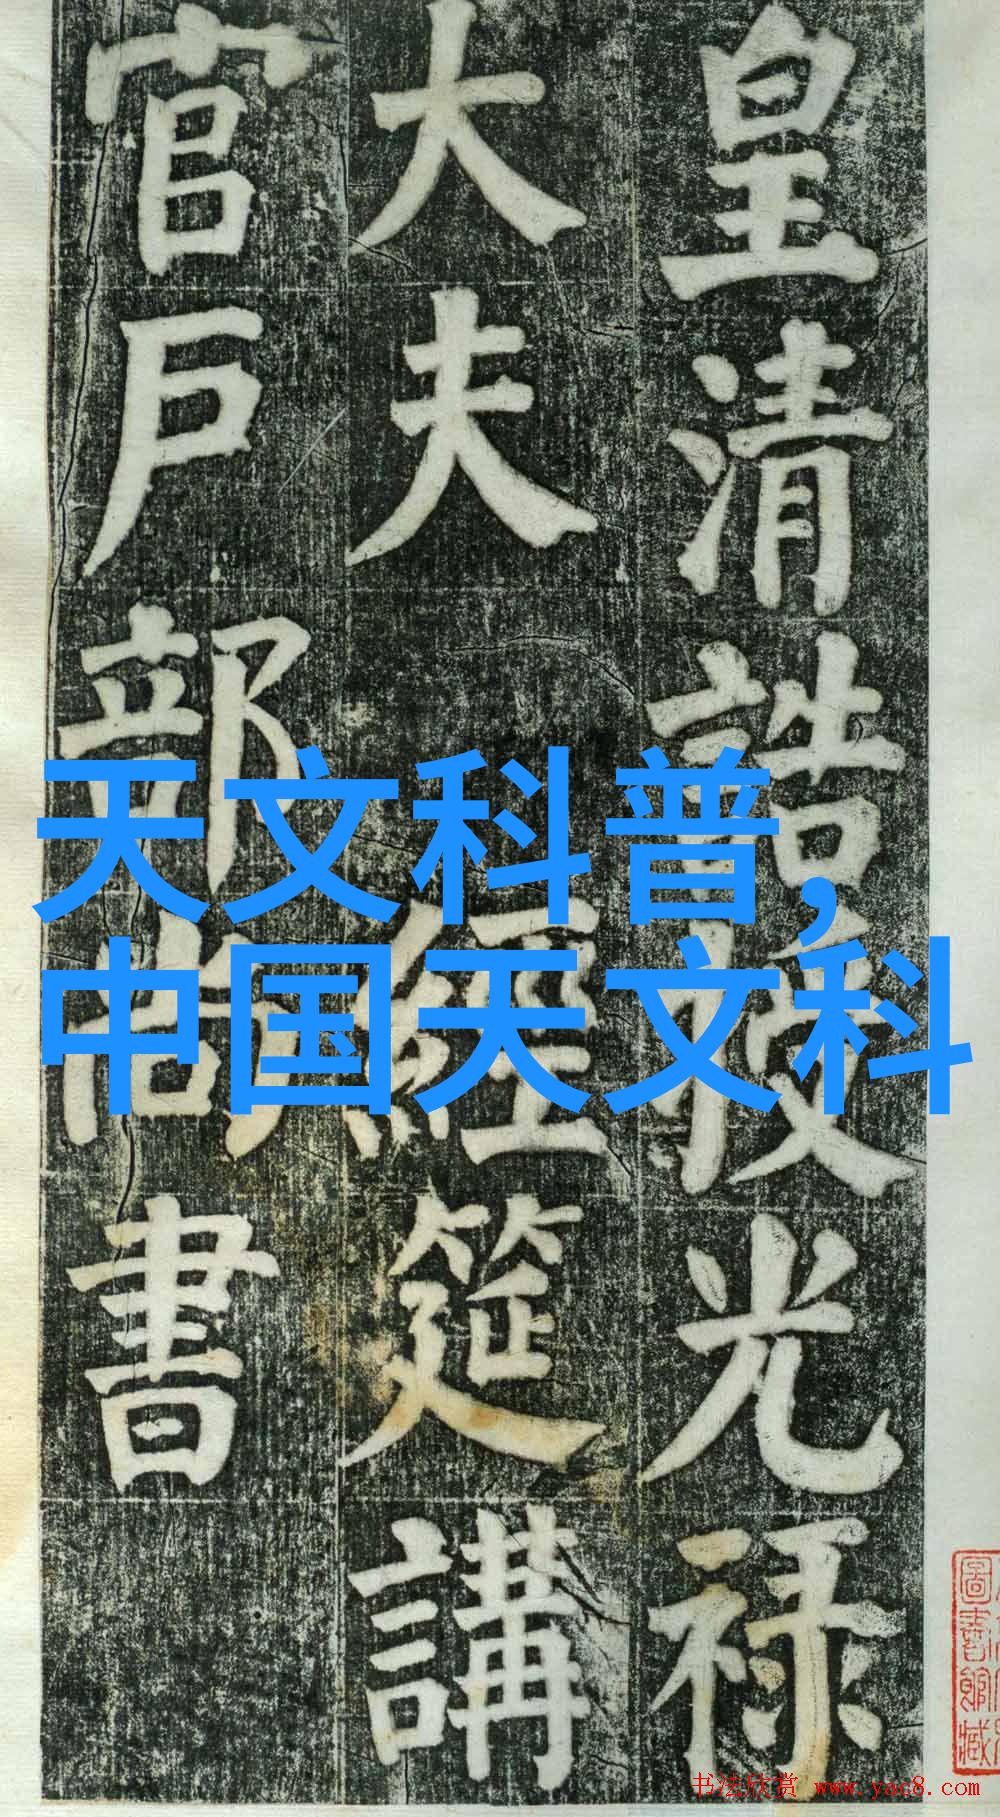 皇清誥授光祿
大夫 經筵講
官戶部尚書
天文科普,
中国天文科
圖書館藏
书法欣赏 www.yac8.com